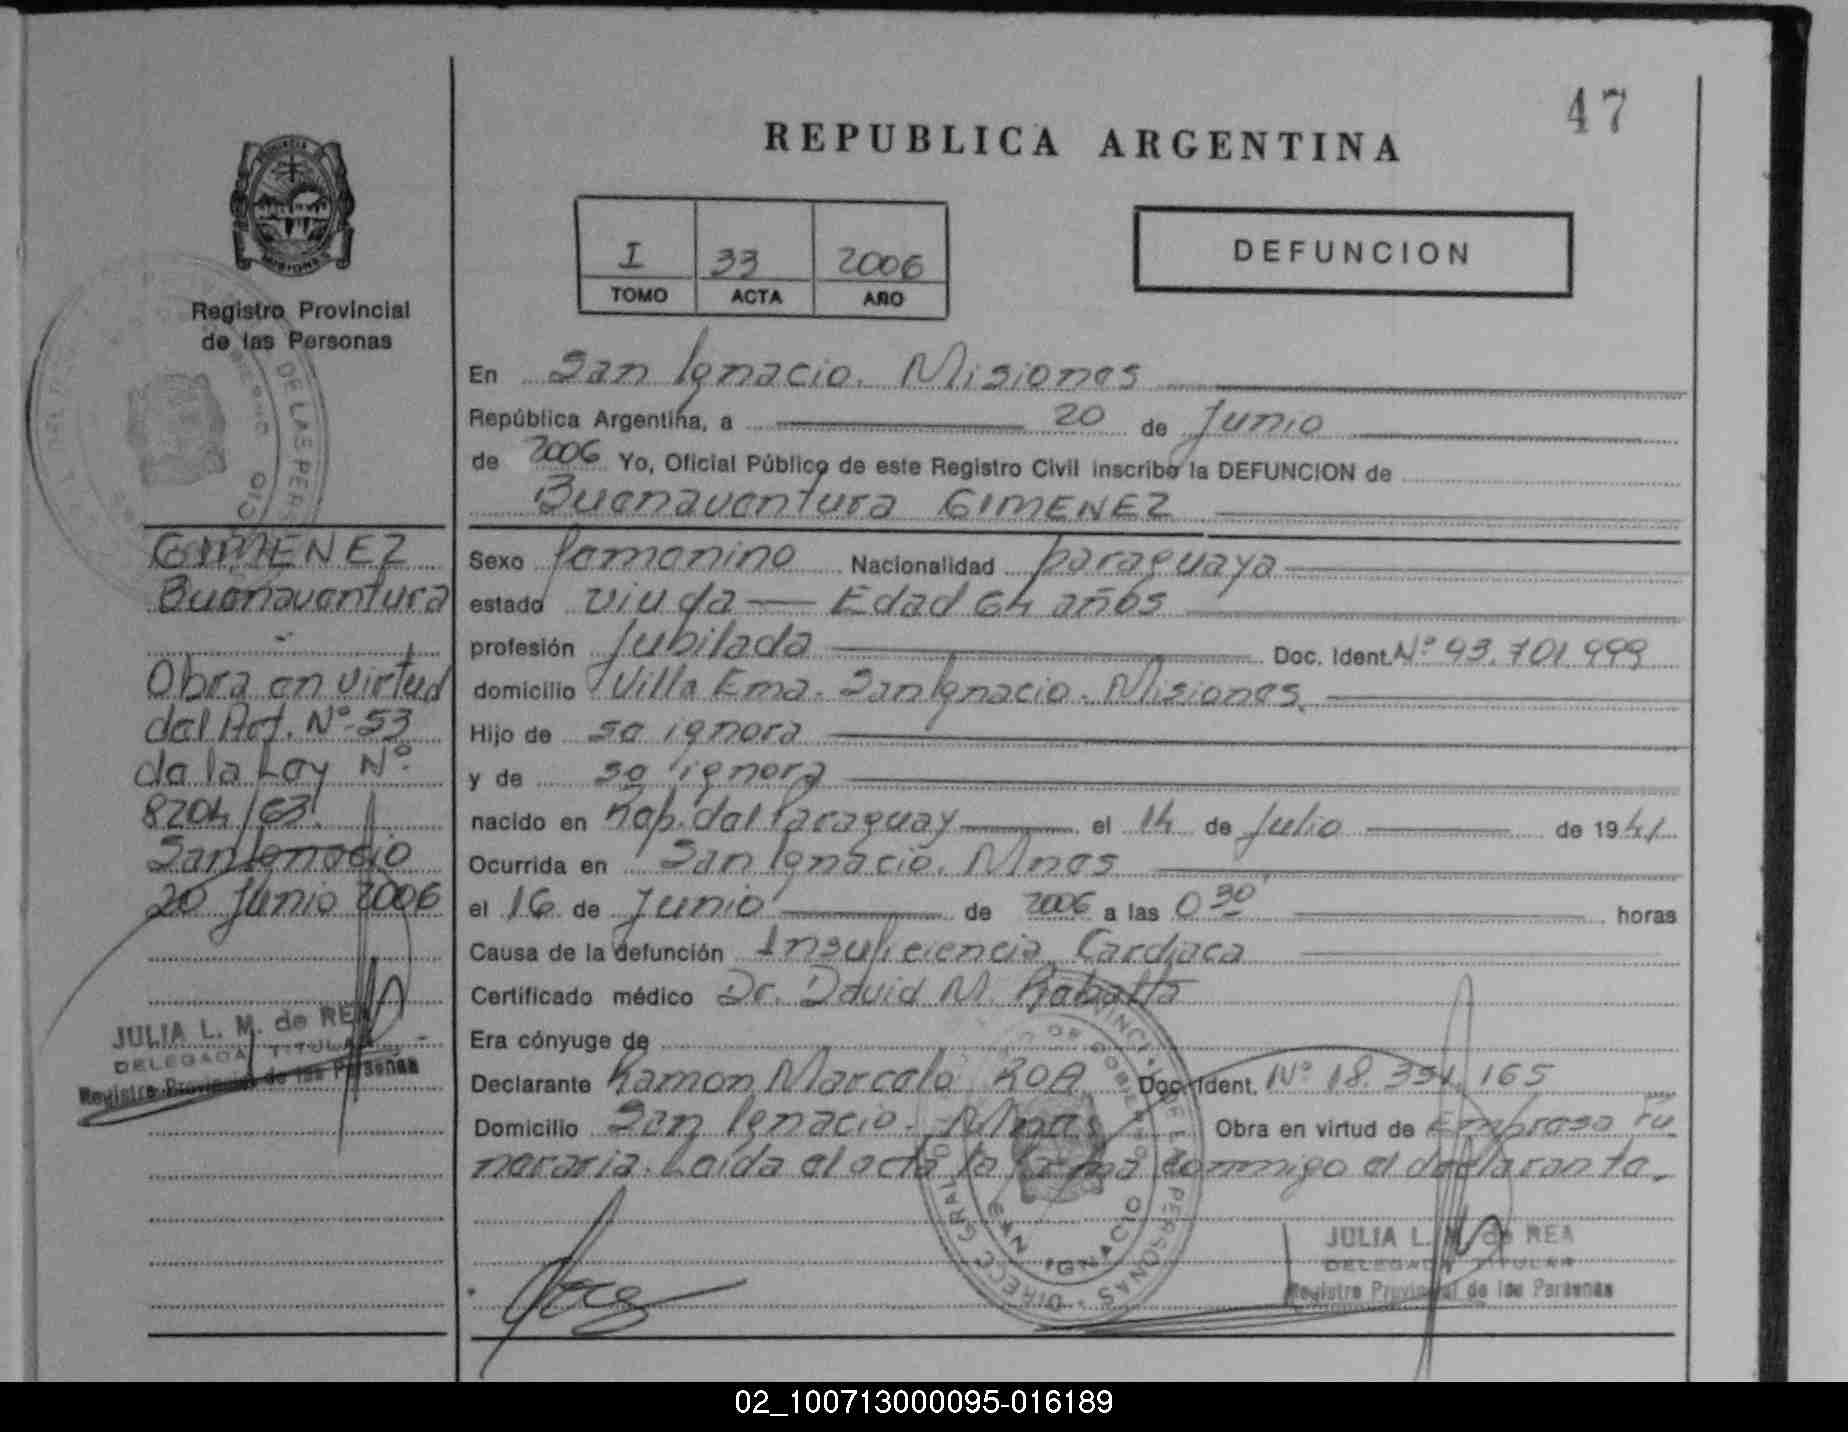 47
REPUBLICA ARGENTINA
I 33 2006
TOMO ACTA AÑO
DEFUNCION
Registro Provincial
de las Personas
GIMENEZ
Buenaventura
Obra en virtud
del Art. Nº 53
de la Ley Nº
8204/63.
San Ignacio
20 Junio 2006
JULIA L. M. de REA
DELEGADA TITULAR
Registro Provincial de las Personas
En San Ignacio. Misiones
República Argentina, a 20 de Junio
de 2006 Yo, Oficial Público de este Registro Civil inscribo la DEFUNCION de
Buenaventura GIMENEZ
Sexo femenino Nacionalidad paraguaya
estado viuda — Edad 64 años
profesión Jubilada Doc. Ident. Nº 93.701.999
domicilio Villa Ema. San Ignacio. Misiones.
Hijo de se ignora
y de se ignora
nacido en Rep. del Paraguay el 14 de Julio de 1941
Ocurrida en San Ignacio. Mnes
el 16 de Junio de 2006 a las 0 30 horas
Causa de la defunción Insuficiencia Cardiaca
Certificado médico Dr. David M.
Era cónyuge de
Declarante Ramon Marcelo ROA Doc. Ident. Nº 18.351.165
Domicilio San Ignacio. Mnes Obra en virtud de Empresa Fu
neraria. Leída el acta la firma conmigo el declarante.
JULIA L. M. de REA
DELEGADA TITULAR
Registro Provincial de las Personas
02_100713000095-016189